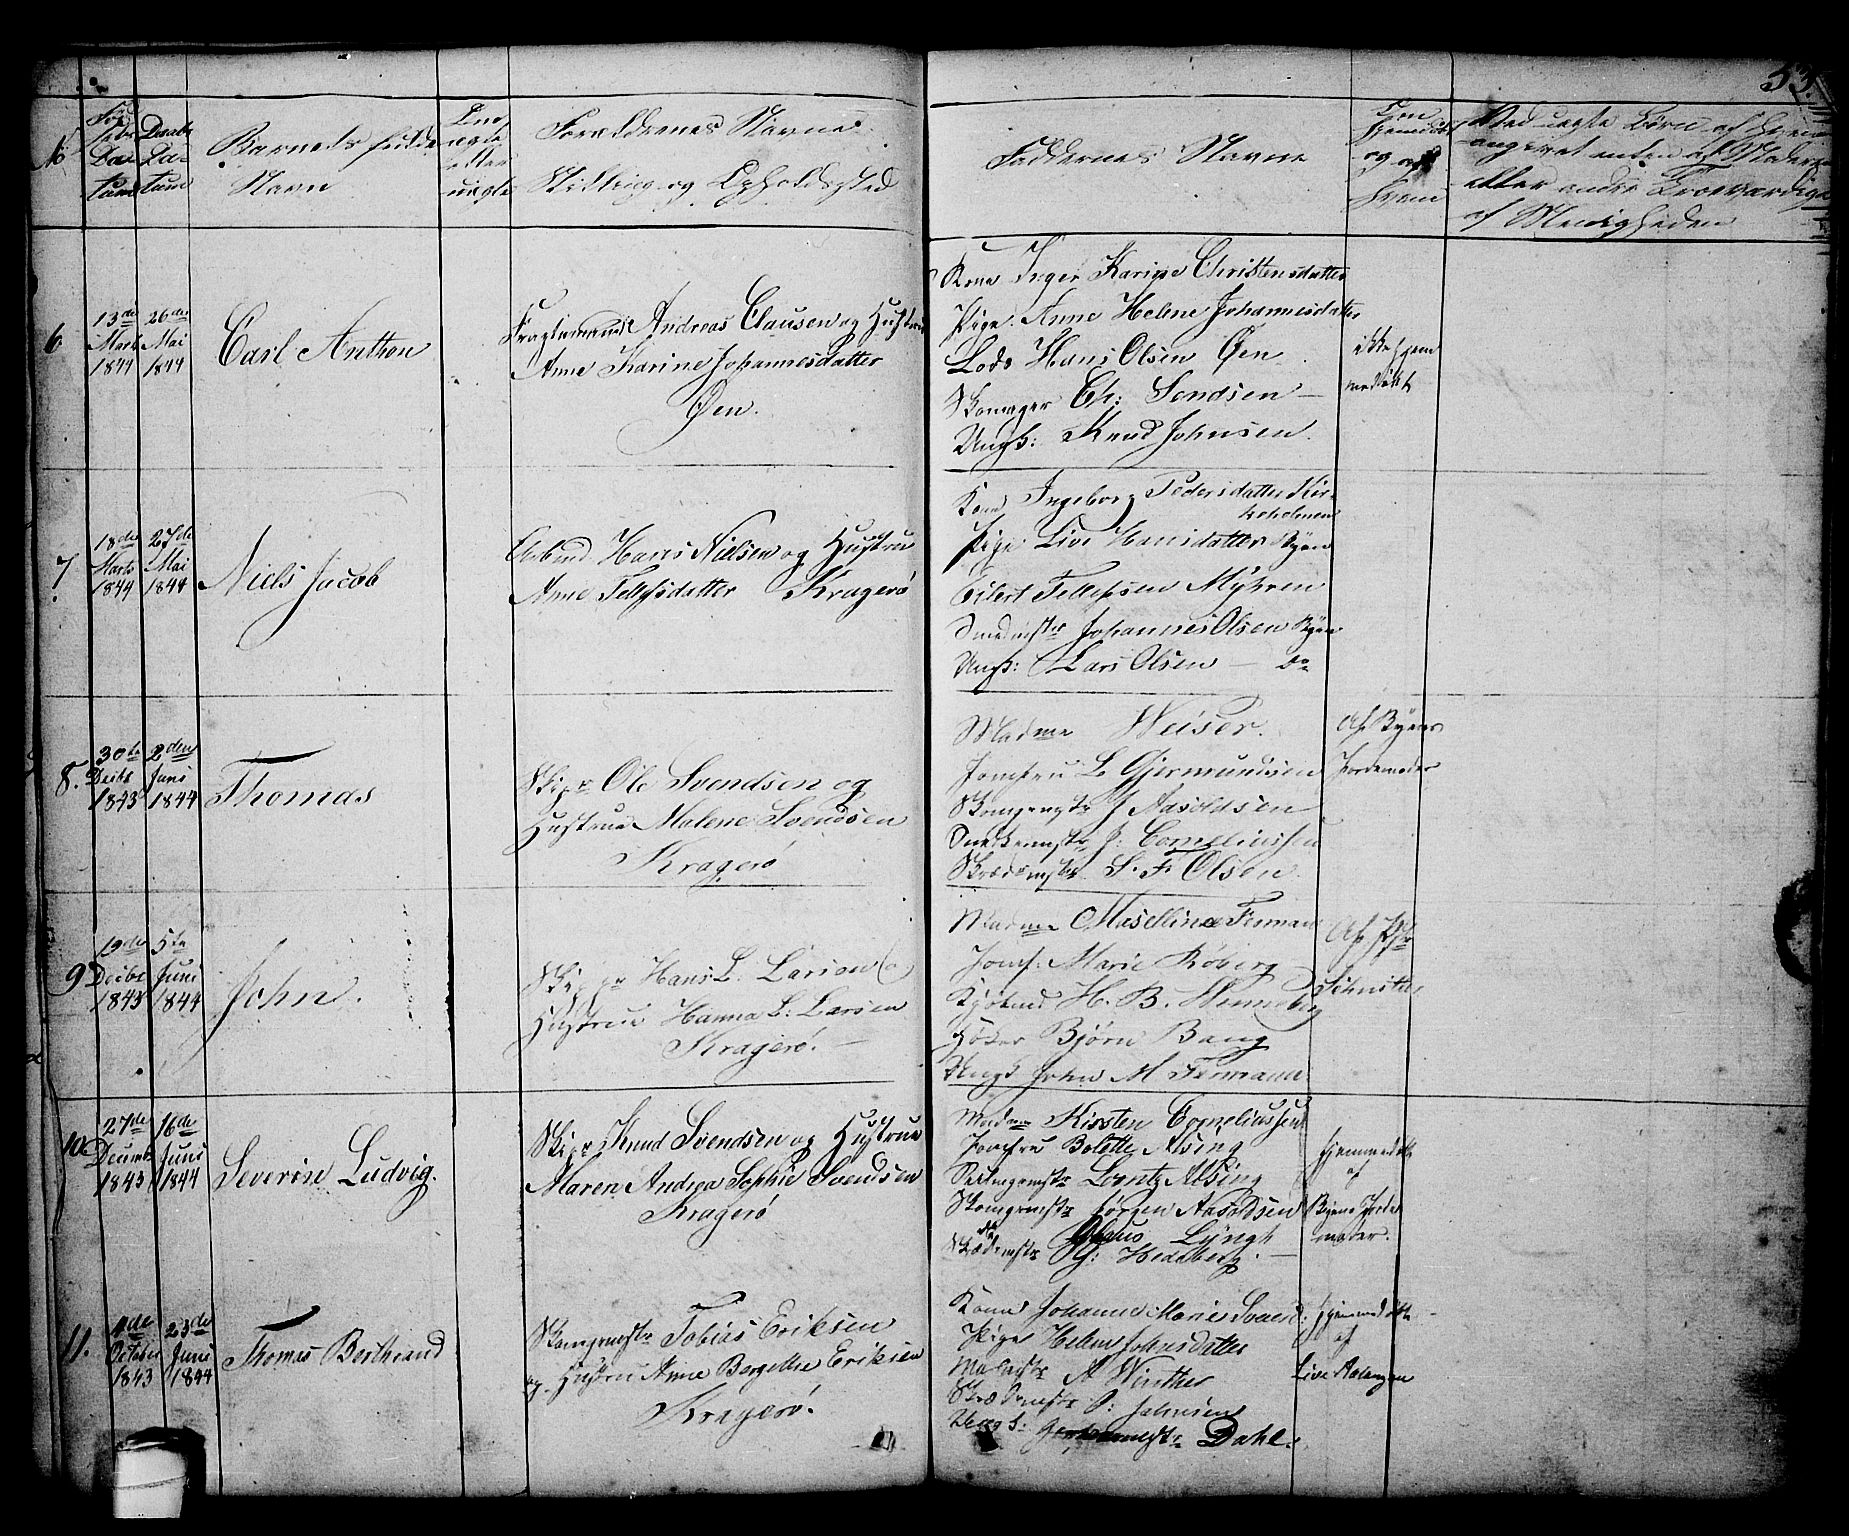 53.
No
Daabs
Da-
tum
Barnets fulde
Navn
Forældrenes Navne
Stilling og Opholdsted
Faddernes Navne
og af
hvem
Ved uægte Børn af hvem
angivet enten af Moderen
eller andre Troeværdige
af Menigheden
6
13de
Marts
1844
26de
Mai
1844
Carl Anthon
Fragtemand Andreas Clausen og Hustrue
Anne Karine Johannesdatter
Øen.
Kone Inger Karine Christensdatter
Pige. Anne Helene Johannesdatter
Lods Hans Olsen Øen
Skomager Ch: Sendsen —
Ungk: Knud Johnsen.
ikke hjem
medøbt
7.
18de
Marts
1844
27de
Mai
1844
Niels Jacob
Hans Nielsen og Hustrue
Anne Tellefsdatter Kragerø
Kone Ingeborg Pedersdatter Kir-
keholmen
Pige Live Hansdatter Byen
Eilert Tellefsen Myhren
Smedmstr Johannes Olsen Byen
Ungk: Lars Olsen — Do
8.
30te
Decbr
1843
2den
Juni
1844
Thomas
Skipr Ole Svendsen og
Hustrue Malene Svendsen
Kragerø
Madme Weiser.
Jomfru L Gjermundsen
Skomagmstr J Aasoldsen
Snedkermstr J: Corneliussen
Skrædmstr S. F. Olsen.
Af Byens
Jordemoder
9
19de
Decbr
1843
5te
Juni
1844
John.
Skippr Hans L: Larsen (o
Hustrue Hanna L: Larsen
Kragerø. —
Madme Maselline Fermann
Jomf: Marie Roberg
Kjøbmd H. B. Henneberg
Høker Bjørn Bang
Ungk John M Fermann
Af
Schnitler
10.
27de
Decembr
1843
16de
Juni
1844
Severin Ludvig.
Skippr Knud Svendsen og Hustrue
Maren Andrea Sophie Svendsen
Kragerø
Madme Kirsten Corneliussen
Jomfru Bolette Alsing
Lorntz Alsing
Skomgrmstr Jørgen Aasoldsen
Lyngh
Skrædrmstr Hedeberg. —
hjemmedøbt
af
Byens Jorde
moder.
11.
4de
October
1843
23de
Juni
1844
Thomas Berthrand
Skomgrmstr Tobias Eriksen
og Hustru Anne Bergethe Eriksen
Kragerø.
Kone Johanne Marie Svends:
Pige Helene Johnsdatter
Malmstr A Winther
Skrædrmstr O: Johnsen
Ungk: Dahl.
hjemmedøbt
af
Live Aalungen